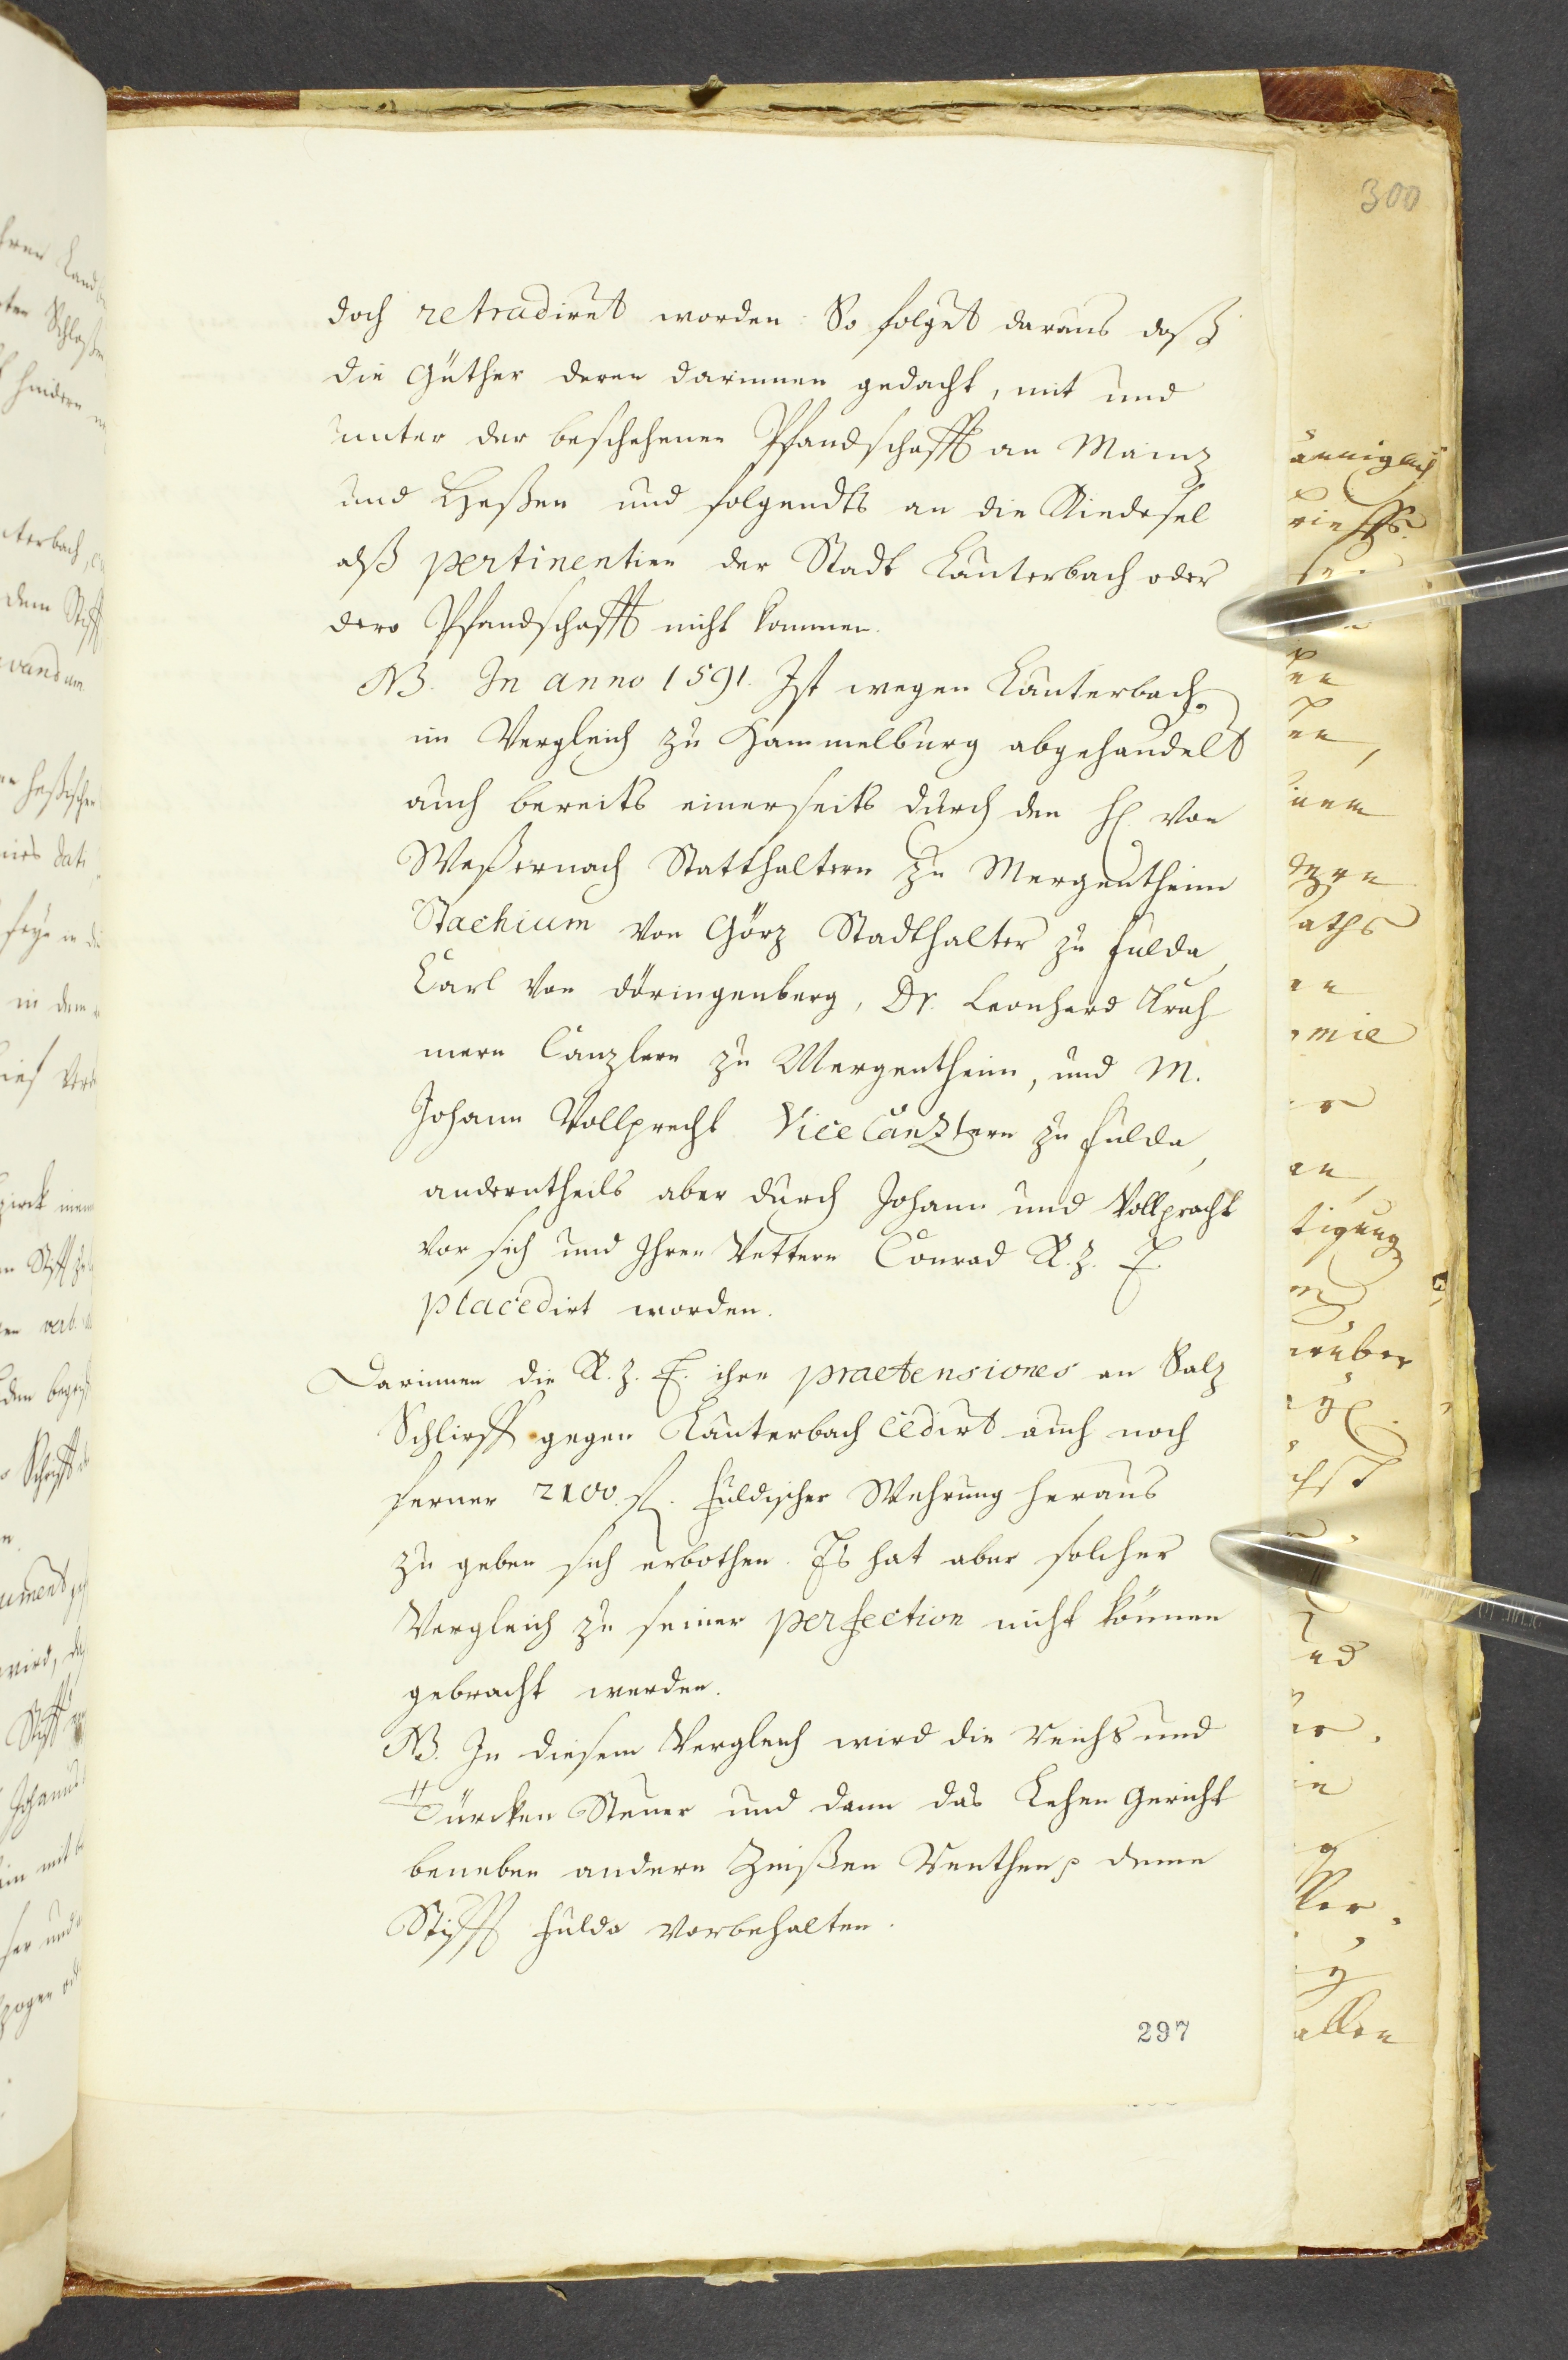 300
doch retradiret worden: So folget daraus daß
die Güther deren darinnen gedacht, mit und
unter der beschehenen Pfandschafft an Mainz
und Heßen und folgendts an die Riedesel
alß pertinentien der Stadt Lauterbach oder
dero Pfandschafft nicht kommen.
NB. In anno 1591. Ist wegen Lauterbach
im Vergleich zu Hammelburg abgehandelt
auch bereits einerseits durch den H. von
Weßernach Statthaltern zu Mergentheim
Stachium von Görz Stadthalter zu Fulda,
Carl von döringenberg, Dr. Leonhard Kruh
mern Canzlern zu Mergentheim, und M.
Johann Vollprecht ViceCanzlern zu Fulda,
anderntheils aber durch Johann und Vollpracht
vor sich und Ihren Vettern Conrad R. z. E.
placedirt worden.
Darinnen die R. z. E. ihre praetensiones an Salz
Schlirff gegen Lauterbach cedirt auch noch
ferner 2100. fl. Fuldischer Wehrung heraus
zu geben sich erbothen. Es hat aber solcher
Vergleich zu seiner perfection nicht können
gebracht werden.
NB. In diesem Vergleich wird die Reichs und
Türcken Steuer und dann das Lehen Gericht
beneben andern Zinßen Renthen p deme
Stifft Fulda vorbehalten.
297